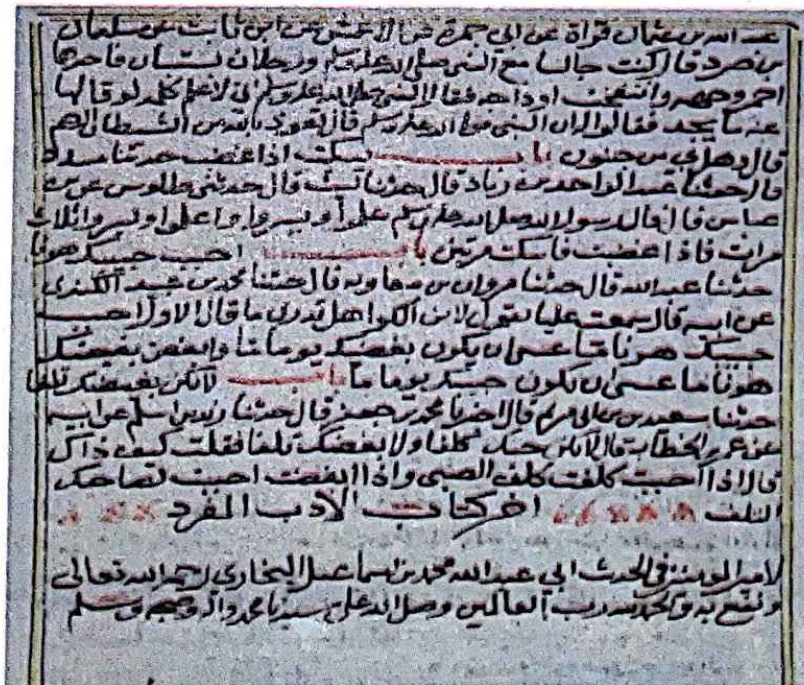 عبد الله بن عثمان قراة عن ابي حمزة عن الاعمش عن ابن ثابت عن سلمان
بن صرد قال كنت جالسا مع النبي صلى الله عليه وسلم ورجلان يستبان فاحدهما
احمر وجهه وانتفخت اوداجه فقال النبي صلى الله عليه وسلم اني لاعلم كلمة لو قالها
عنه ما يجد فقالوا له ان النبي صلى الله عليه وسلم قال تعوذ بالله من الشيطان الرجيم
قال وهل بي من جنون باب يسكت اذا غضب حدثنا مسدد
قال حدثنا عبد الواحد بن زياد قال حدثنا ليث قال حدثني طاوس عن بن
عباس قال قال رسول الله صلى الله عليه وسلم علموا ويسروا واعلموا ويسروا ثلاث
مرات فاذا غضبت فاسكت مرتين باب احبب حبيبك هونا
حدثنا عبد الله قال حدثنا مروان بن معاوية قال حدثنا محمد بن عبيد الكندي
عن ابيه قال سمعت عليا يقول لابن الكوا هل تدري ما قال الاول احبب
حبيبك هونا ما عسى ان يكون بغيضك يوما ما وابغض بغيضك
هونا ما عسى ان يكون حبيبك يوما ما باب لا يكن بغضك تلفا
حدثنا سعيد بن ابي مريم قال اخبرنا محمد بن جعفر قال حدثنا زيد بن اسلم عن ابيه
عن عمر بن الخطاب قال لا يكن حبك كلفا ولا بغضك تلفا فقلت كيف ذاك
قال اذا احببت كلفت كلف الصبي واذا ابغضت احببت لصاحبك
التلف اخر كتاب الادب المفرد
لامير المومنين في الحديث ابي عبد الله محمد بن اسماعيل البخاري رحمه الله تعالى
ونفع به والحمد لله رب العالمين وصلى الله على سيدنا محمد واله وصحبه وسلم